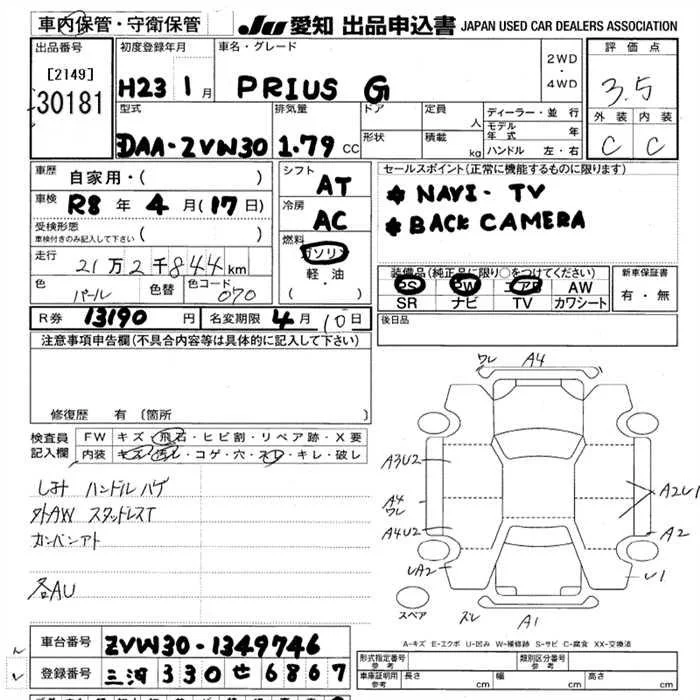 車内保管・守衛保管
JU 愛知 出品申込書 JAPAN USED CAR DEALERS ASSOCIATION
出品番号
[2149]
30181
初度登録年月
H23 1月
車名・グレード
PRIUS G
2WD
・
4WD
評価点
3.5
外装 内装
C C
型式
DAA-ZVW30
排気量
1.79 CC
ドア
形状
定員
人
積載
kg
ディーラー・並行
モデル年式 年
ハンドル 左・右
車歴 自家用・( )
車検 R8年4月(17日)
受検形態
車検付きのみ記入して下さい ( )
走行 21万2千844km
色 パール 色替 色コード 070
シフト AT
冷房 AC
燃料
ガソリン
軽・油
( ・ )
セールスポイント(正常に機能するものに限ります)
* NAVI・TV
* BACK CAMERA
装備品(純正品に限り○をつけてください)
PS PW エアB AW
SR ナビ TV カワシート
新車保証書
有・無
R券 13190円 名変期限 4月10日
後日品
注意事項申告欄(不具合内容等は具体的に記入して下さい)
修復歴 有〔箇所
検査員記入欄
FW キズ・飛石・ヒビ割・リペア跡・X要
内装 キズ・汚レ・コゲ・穴・スレ・キレ・破レ
しみ ハンドルハゲ
外AW スタッドレスT
カンバンアト
各AU
ワレ A4
A3U2
A4
ワレ
A4U2
UA2
A2U1
A2
U1
スペア
ズレ A1
A-キズ E-エクボ U-凹み W-補修跡 S-サビ C-腐食 XX-交換済
車台番号 ZVW30-1349746
登録番号 三河 330 せ 6867
形式指定番号
参考
類別区分番号
参考
車庫証明用
参考
長さ cm 幅 cm 高さ cm